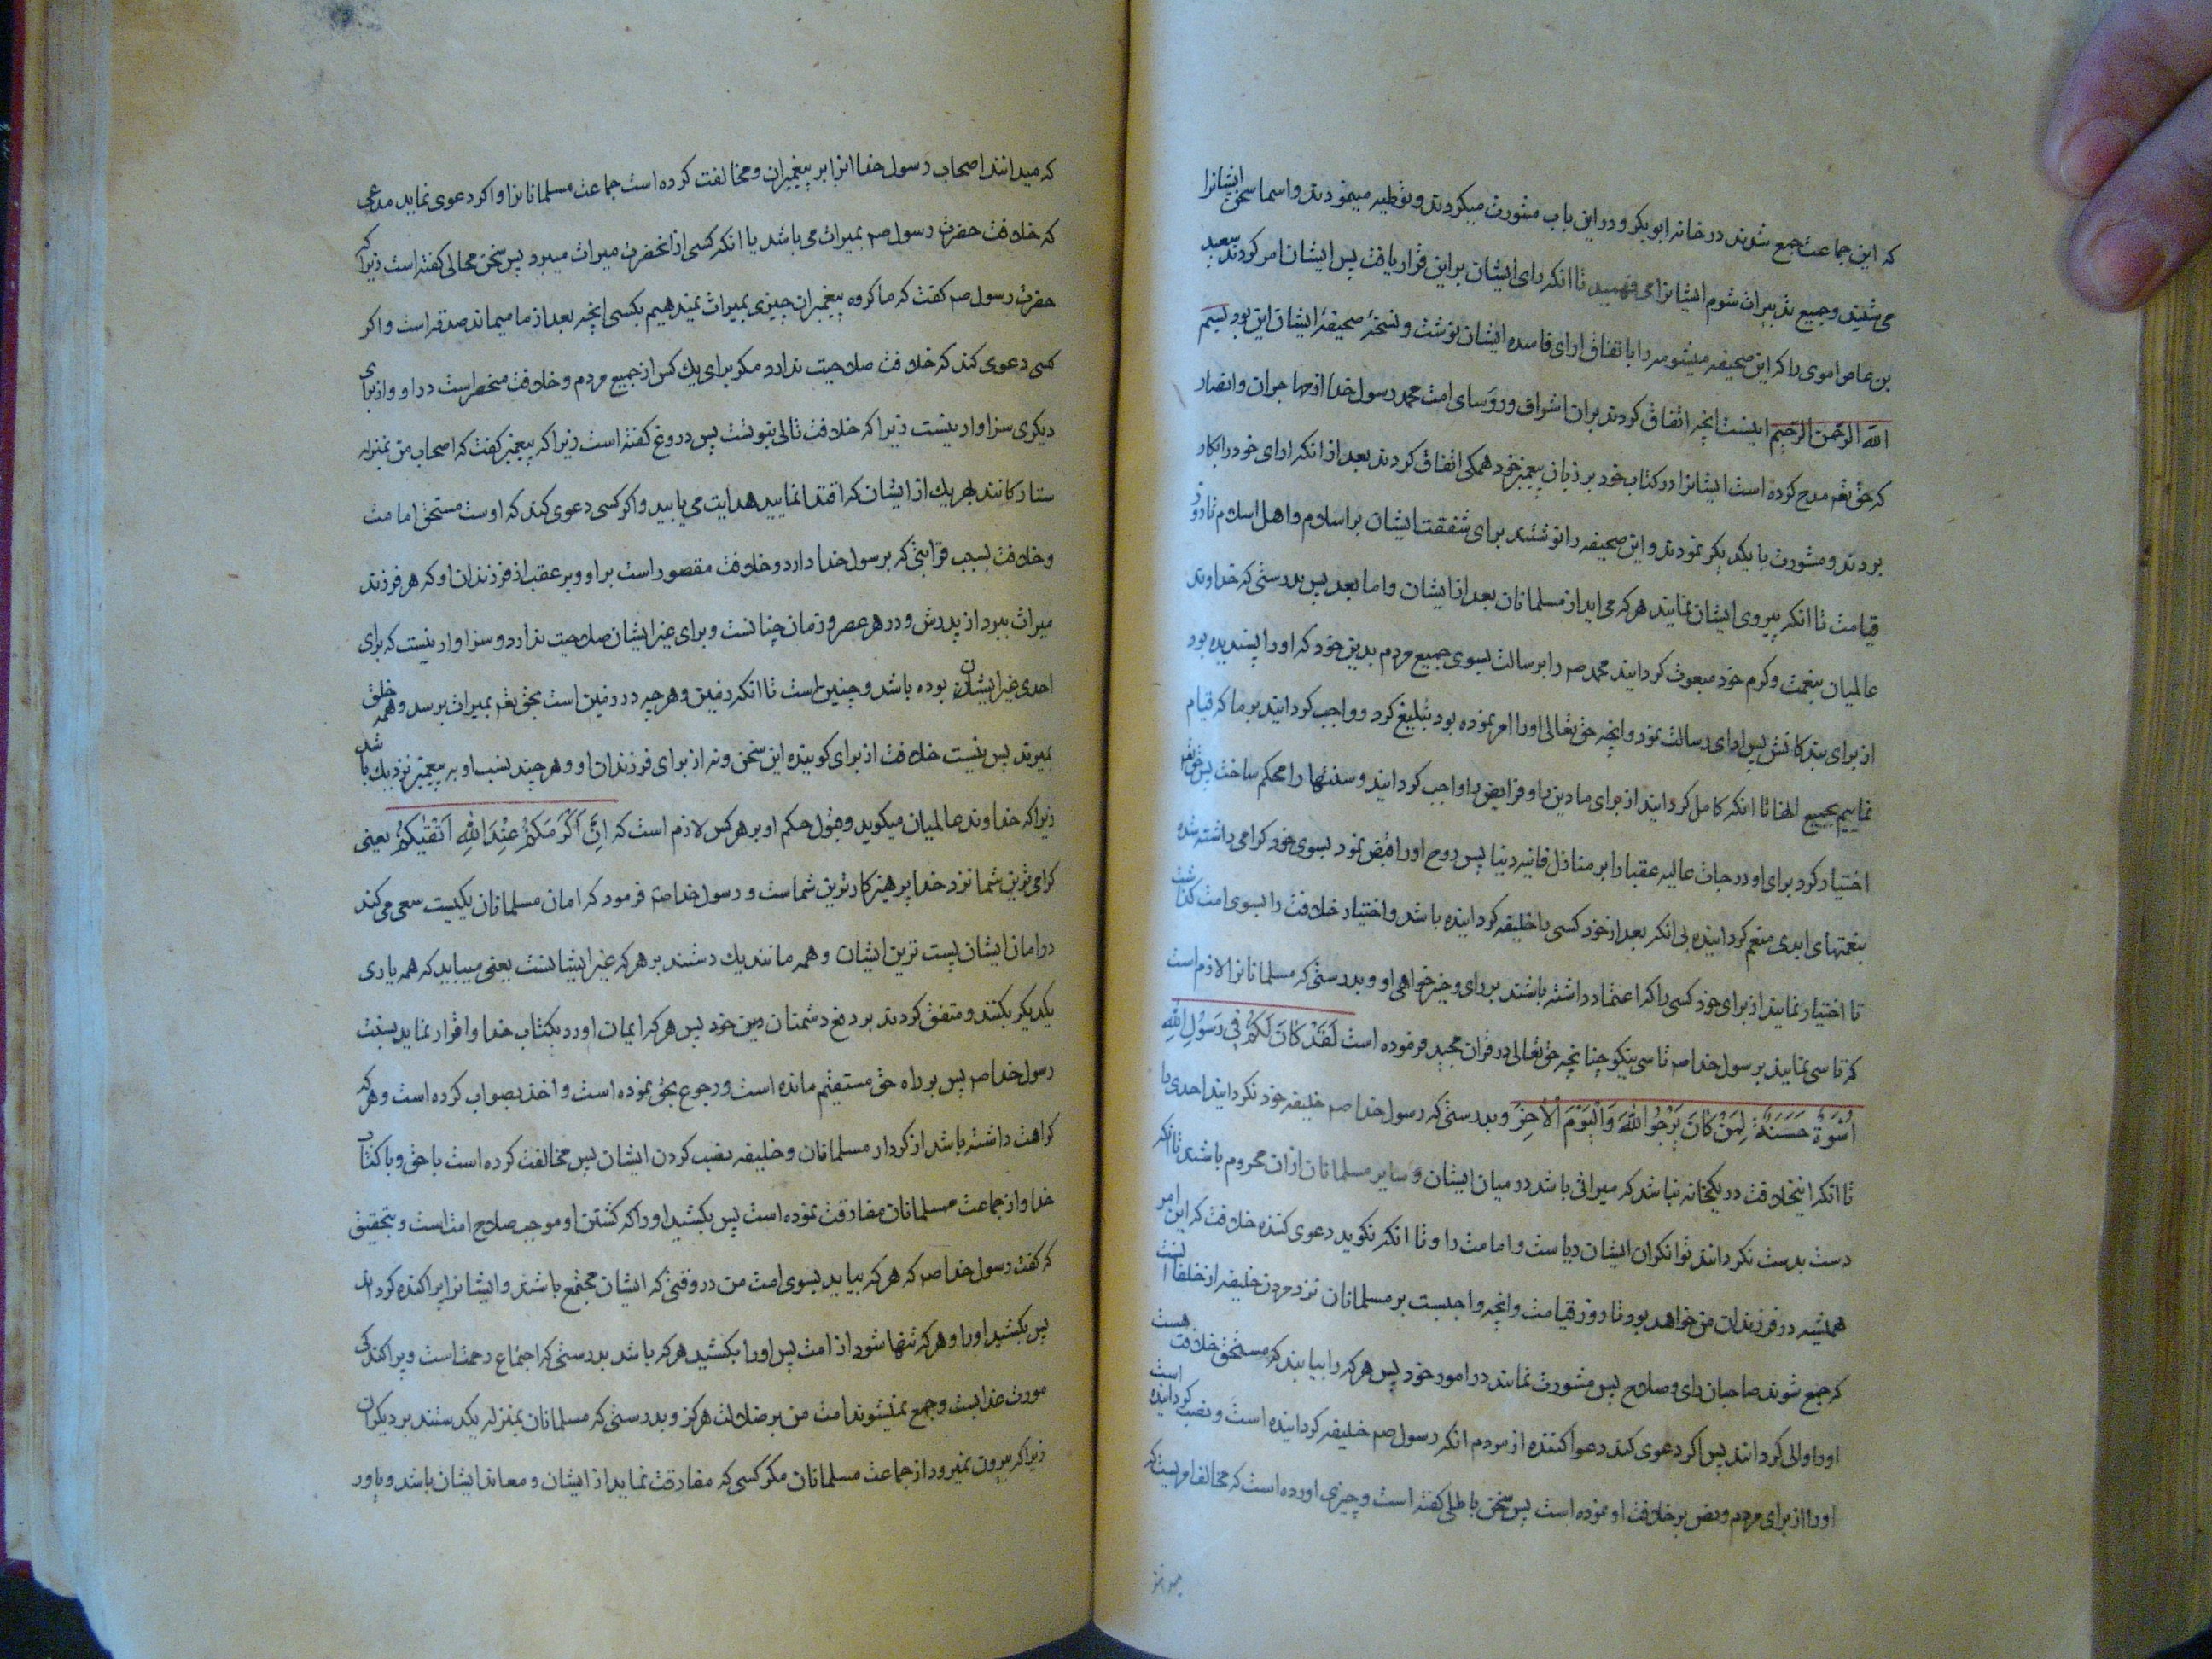 که این جماعت جمع شدند در خانه ابو بکر و در این باب مشورت میکردند و توطیه مینمودند و اسما سخن ایشانرا
می شنید و جمیع تدبیرات شوم ایشانرا می فهمید تا انکه رای ایشان بر این قرار یافت پس ایشان امر کردند سعید
بن عاص اموی را که این صحیفه میشومه را باتفاق ارای فاسده ایشان نوشت و نسخهٔ صحیفهٔ ایشان این بود بسم
الله الرحمن الرحیم اینست انچه اتفاق کردند بران اشراف و روسای امت محمد رسول خدا از مهاجران و انصار
که حق تعم مدح کرده است ایشانرا در کتاب خود بر زبان پیغمبر خود همکی اتفاق کردند بعد از انکه ارای خود را بکار
بردند و مشورت با یکدیکر نمودند و این صحیفه را نوشتند برای شفقت ایشان بر اسلام و اهل اسلام تا روز
قیامت تا انکه پیروی ایشان نمایند هر که می اید از مسلمانان بعد از ایشان و اما بعد پس بدرستی که خداوند
عالمیان بنعمت و کرم خود مبعوث کردانید محمد صم را برسالت بسوی جمیع مردم بدین خود که اورا پسندیده بود
از برای بندکانش پس ادای رسالت نمود و انچه حق تعالی اورا امر نموده بود تبلیغ کرد و واجب کردانید بر ما که قیام
نماییم بجمیع انها تا انکه کامل کردانید از برای ما دین را و فرایض را واجب کردانید و سنتها را محکم ساخت پس حق تعم
اختیار کرد برای او درجات عالیه عقبا را بر منازل فانیه دنیا پس روح اورا قبض نمود بسوی خود کرامی داشته شده
بنعمتهای ابدی منعم کردانیده بی انکه بعد از خود کسی را خلیفه کردانیده باشد و اختیار خلافت را بسوی امت کذاشت
تا اختیار نمایند از برای خود کسی را که اعتماد داشته باشند بر رای و خیر خواهی او و بدرستی که مسلمانانرا لازم است
که تاسی نمایند برسول خدا صم تاسی نیکو چنانچه حق تعالی در قران مجید فرموده است لَقَدْ كَانَ لَكُمْ فِی رَسُولِ اللهِ
اُسْوَةٌ حَسَنَةٌ لِمَنْ كَانَ یَرْجُو اللهَ وَ الْیَوْمَ الْاٰخِرَ و بدرستی که رسول خدا صم خلیفه خود نکردانید احدی را
تا انکه اینخلافت در یکخانه نباشد که میراثی باشد در میان ایشان و سایر مسلمانان از ان محروم باشند تا انکه
دست بدست نکردانند توانکران ایشان ریاست و امامت را و تا انکه نکوید دعوی کننده خلافت که این امر
همیشه در فرزندان من خواهد بود تا روز قیامت و انچه واجبست بر مسلمانان نزد مردن خلیفه از خلفا انست
که جمع شوند صاحبان رای و صلاح پس مشورت نمایند در امور خود پس هر که را بیابند که مستحق خلافت هست
اورا والی کردانند پس اکر دعوی کند دعوا کننده از مردم انکه رسول صم خلیفه کردانیده است و نصب کردانیده است
اورا از برای مردم و نص بر خلافت او نموده است پس سخن باطلی کفته است و چیزی اورده است که مخالف امریست که
که میدانند اصحاب رسول خدا انرا بر پیغمبران و مخالفت کرده است جماعت مسلمانانرا و اکر دعوی نماید مدعی
که خلافت حضرت رسول صم بمیراث می باشد یا انکه کسی از انحضرت میراث میبرد پس سخن محالی کفته است زیرا که
حضرت رسول صم کفت که ما کروه پیغمبران چیزی بمیراث نمیدهیم بکسی انچه بعد از ما میماند صدقه است و اکر
کسی دعوی کند که خلافت صلاحیت ندارد مکر برای یك کس از جمیع مردم و خلافت منحصر است در او و از برای
دیکری سزاوار نیست زیرا که خلافت تالی نبوتست پس دروغ کفته است زیرا که پیغمبر کفت که اصحاب من بمنزله
ستارکانند بهر یك از ایشان که اقتدا نمایید هدایت می یابید و اکر کسی دعوی کند که اوست مستحق امامت
و خلافت بسبب قرابتی که برسول خدا دارد و خلافت مقصور است بر او و بر عقب از فرزندان او که هر فرزند
میراث ببرد از پدرش و در هر عصر و زمان چنانست و برای غیر ایشان صلاحیت ندارد و سزاوار نیست که برای
احدی غیر ایشان بوده باشد و چنین است تا انکه زمین و هر چه در زمین است بحق تعم بمیراث برسد و همه خلق
بمیرند پس نیست خلافت از برای کوینده این سخن و نه از برای فرزندان او و هر چند نسب او به پیغمبر نزدیك باشد
زیرا که خداوند عالمیان میکوید و قبول حکم او بر هر کس لازم است که اِنَّ اَكْرَمَكُمْ عِنْدَ اللهِ اَتْقٰیكُمْ یعنی
کرامی ترین شما نزد خدا پرهیزکار ترین شماست و رسول خدا صم فرمود که امان مسلمانان یکیست سعی می کند
در امان ایشان پست ترین ایشان و همه مانند یك دستند بر هر که غیر ایشانست یعنی میباید که همه یاری
یکدیکر بکنند و متفق کردند بر دفع دشمنان دین خود پس هر که ایمان اورد بکتاب خدا و اقرار نماید بسنت
رسول خدا صم پس بر راه حق مستقیم مانده است و رجوع بحق نموده است و اخذ بصواب کرده است و هر که
کراهت داشته باشد از کردار مسلمانان و خلیفه نصب کردن ایشان پس مخالفت کرده است با حق و با کتاب
خدا و از جماعت مسلمانان مفارقت نموده است پس بکشید اورا که کشتن او موجب صلاح امت است و بتحقیق
که کفت رسول خدا صم که هر که بیاید بسوی امت من در وقتی که ایشان مجتمع باشند و ایشانرا پراکنده کرداند
پس بکشید اورا و هر که تنها شود از امت پس اورا بکشید هر که باشد بدرستی که اجتماع رحمت است و پراکندکی
مورث عذابست و جمع نمیشوند امت من بر ضلالت هرکز و بدرستی که مسلمانان بمنزله یکدستند بر دیکران
زیرا که بیرون نمیرود از جماعت مسلمانان مکر کسی که مفارقت نماید از ایشان و معاند ایشان باشد و یاور